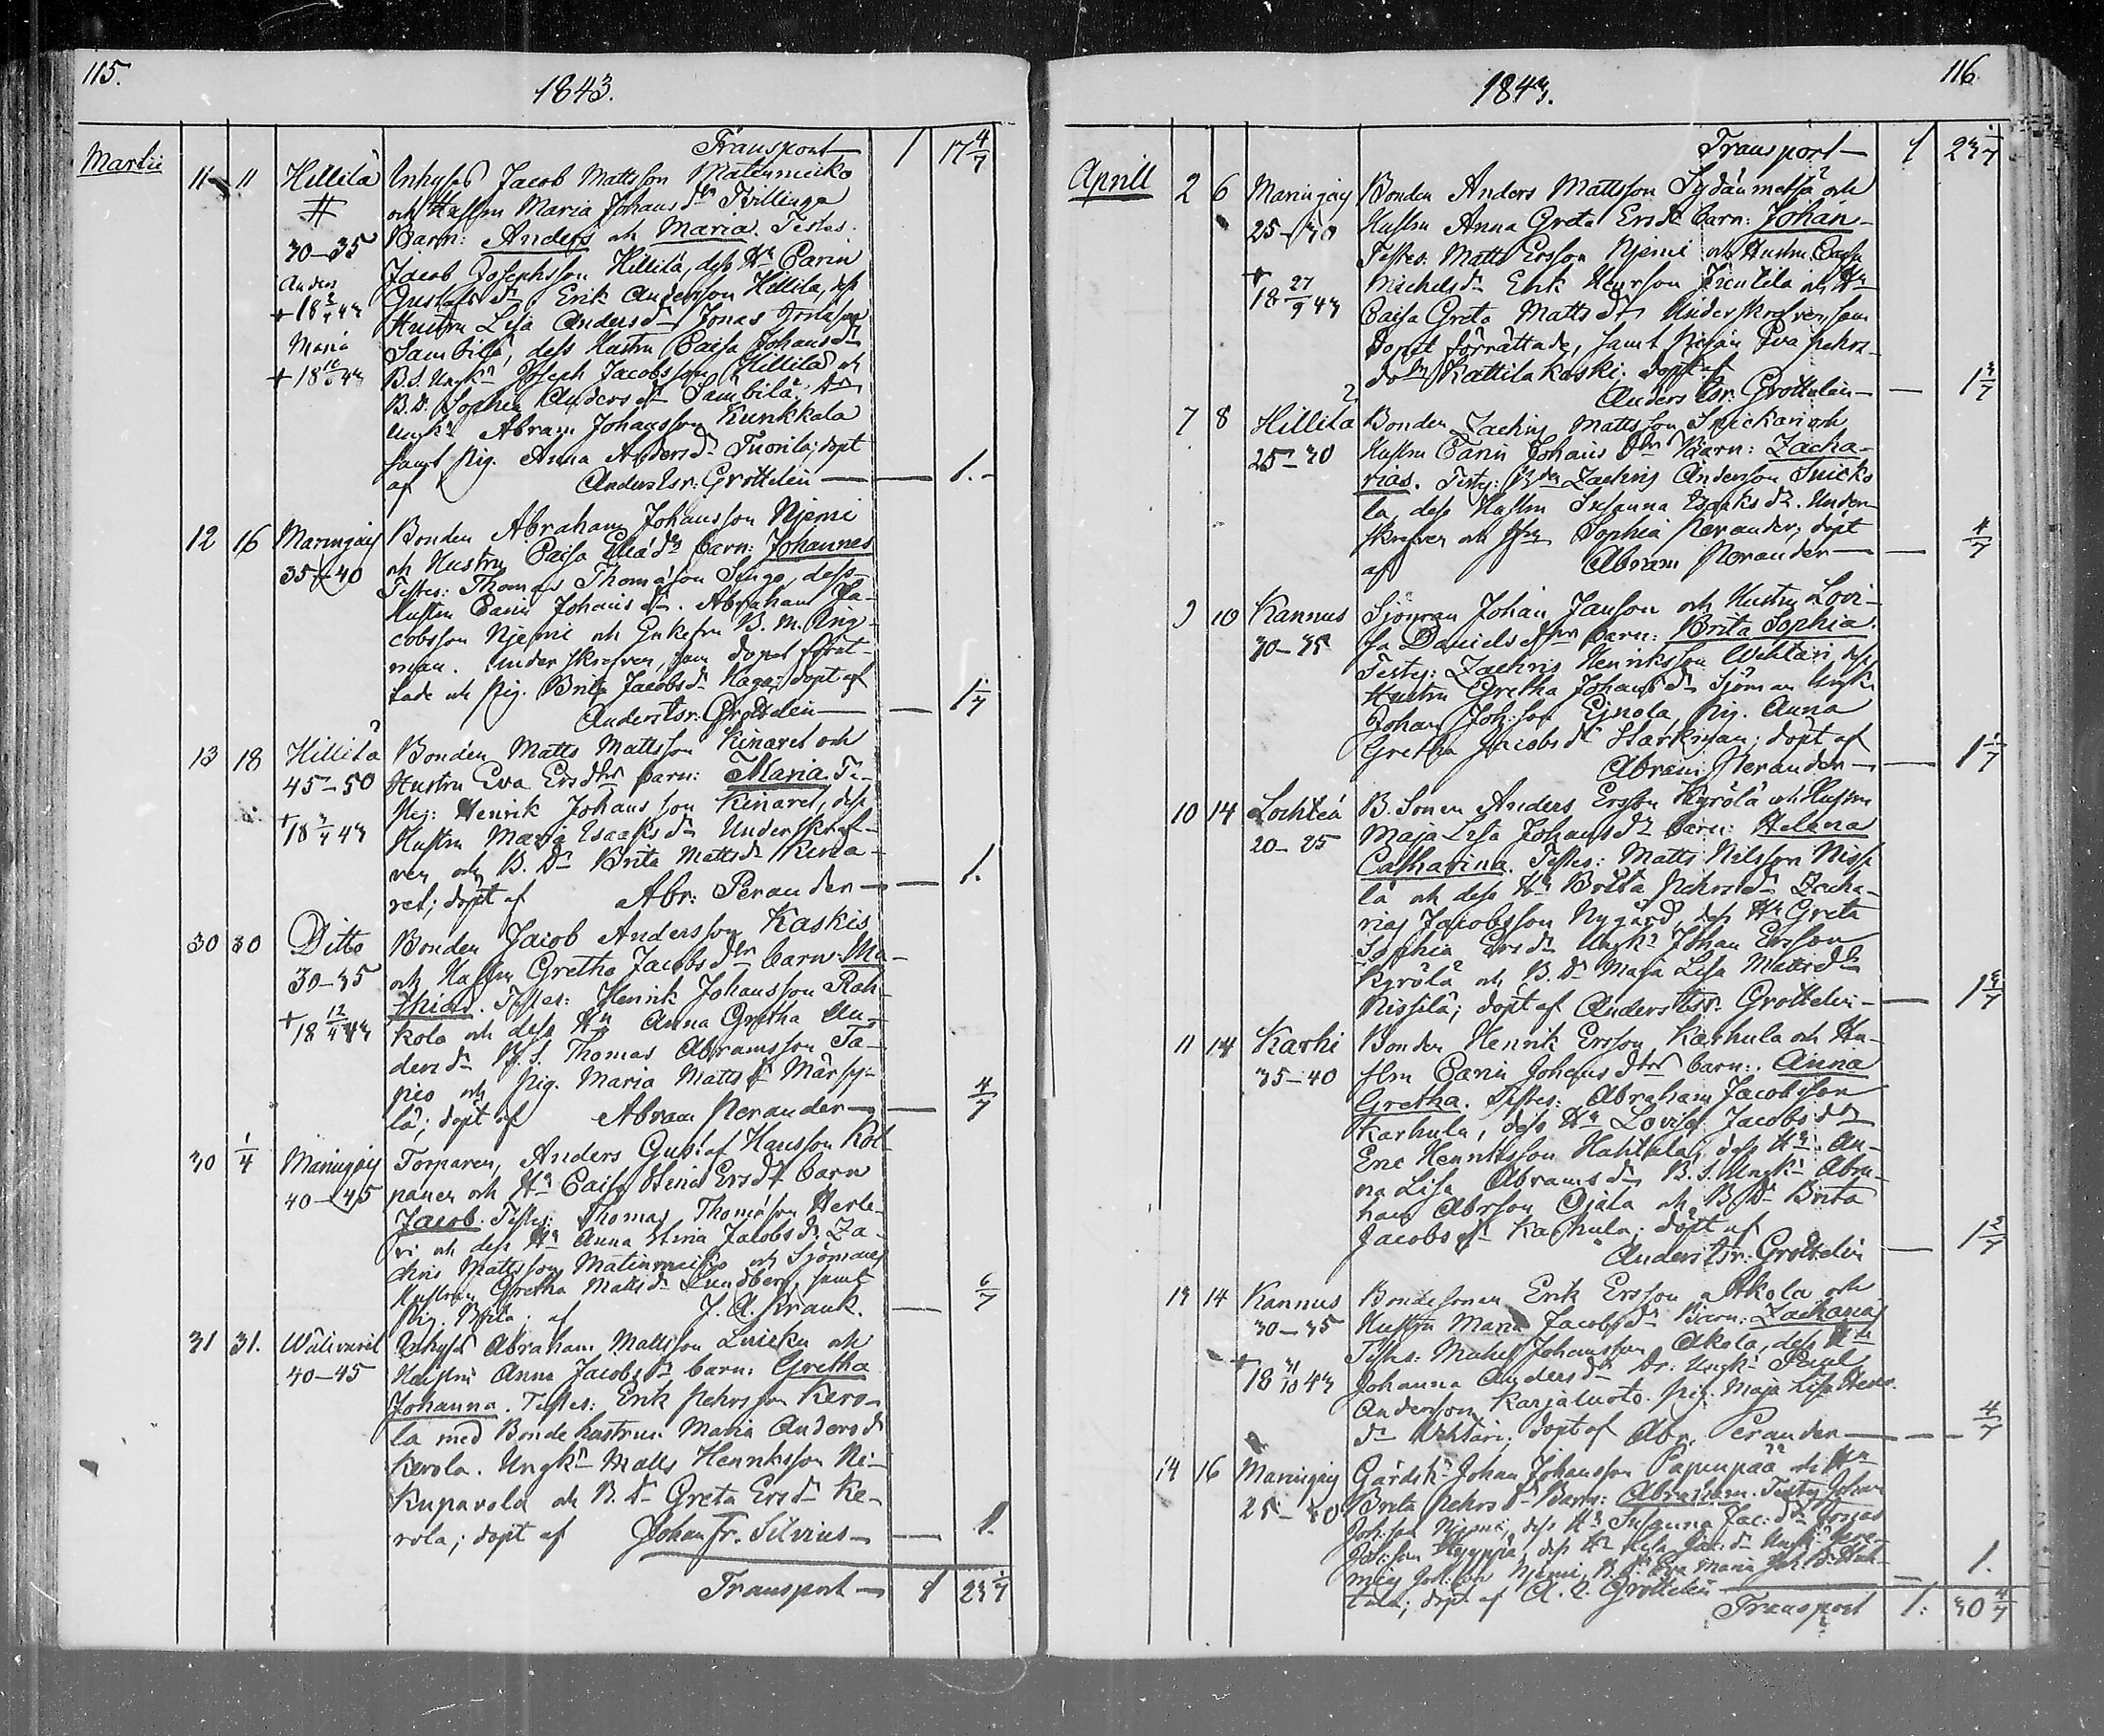 115.
1843.
Transport — 1 17 4/7
Martii 11 11 Hillilä Inhyses Jacob Mattsson Matinmicko
och Hustru Maria Johansdr Tvillinge
30–35 Barn: Anders och Maria. Testes:
Anders Jacob Josephsson Hillilä, dess Hu Carin
Gustafsdr, Erik Andersson Hillilä, dess
Hustru Lisa Andersdr Jonas
Maria Sambilä, dess Hustru Caisa Johansdr
B.S. Ungkn Joseph Jacobsson Hillilä och
B.D. Sophia Andersdr Sambilä.
Ungkn Abram Johansson Kunkkala
samt Pig. Anna Andersdr Tuorila; döpt
af Anders Esr: Grottelin — — 1.–
12 16 Maringais Bonden Abraham Johansson Njemi
35–40 och Hustru Caisa Eliædr barn: Johannes
Testes: Thomas Thomasson Singo, dess
Hustru Carin Johansdr. Abraham Ja-
cobsson Njemi och Enkefru B. M. Ring-
man. Underskrefven, som dopet förrät-
tade och Pig. Brita Jacobsdr Haga; döpt af
Anders Esr: Grottelin — — 1 1/7
13 18 Hillilä Bonden Matts Mattsson Kinaret och
45–50 Hustru Eva Ersdtr barn: Maria. Te-
stes: Henrik Johansson Kinaret, dess
+ 18 3/4 43 Hustru Maria Esaaksdr Underskref-
ven och B. Dr Brita Mattsdr Kina-
ret; döpt af Abr: Perander — — 1.
30 30 Ditto Bonden Jacob Andersson Kaskis
30–35 och Hustru Gretha Jacobsdtr barn: Ma-
thias. Testes: Henrik Johansson Rah-
+ 18 12/4 43 kola och dess Hu Anna Gretha An-
dersdr B.S. Thomas Abramsson Ta-
pio och Pig. Maria Mattsdr Märsy-
lä; döpt af Abram Perander — — 4/7
30 1/4 Maringais Torparen, Anders Gustaf Hansson Kol-
40–45 paner och Hu Caisa Stina Ersdr barn
Jacob. Testes: Thomas Thomasson Herle-
vi och dess Hu Anna Stina Jacobsdr Za-
chris Mattsson Matinmicko och Sjömans
Hustrun Gretha Mattsdr Lundberg, samt
Pig. Brita; af J. A. Krank. — 6/7
31 31. Wäliveril Inhyses Abraham Mattsson Luicku och
40–45 Hustru Anna Jacobsdr barn: Gretha
Johanna. Testes: Erik Pehrsson Kero-
la med Bondehustrun Maria Andersdr
Kerola. Ungkn Matts Henriksson Ni-
kuparola och B. Dr Greta Ersdr Ke-
rola; döpt af Johan Fr. Silvius — — 1.
Transport — 1 23 1/7
1843.
116
Transport — 1 23 1/7
Aprill 2 6 Maringais Bonden Anders Mattsson Sydänmetsä och
25–30 Hustru Anna Greta Ersdr barn: Johan
Testes: Matts Ersson Njemi och Hustru Caisa
+ 18 27/9 43 Michelsdr Erik Henrsson Jrentilä och Hu
Caisa Greta Mattsdr Underskrefven, som
dopet förrättade, samt Pigan Eva Pehrs-
dotter Kattilakoski. döpt af
Anders Esr. Grottelin — — 1 3/7
7 8 Hillilä Bonden Zachris Mattsson Snickari och
25–30 Hustru Carin Johansdtr Barn: Zacha-
rias. Testes: Bdn Zachris Andersson Snicko
la, dess Hustru Susanna Esaksdr. Under-
skrefven och Sophia Perander; döpt
af Abram Perander — — 4/7
9 10 Kannus Sjöman Johan Janson och Hustru Lovi-
30–35 sa Danielsdtr barn: Brita Sophia.
Testes: Zachris Henriksson Wihtari, dess
Hustru Gretha Johansdr Sjöman Ungkn
Johan Joh:son Ejnola, Pig. Anna
Gretha Jacobsdr Starkman; döpt af
Abram Perander — — 1 1/7
10 14 Lochteå B. Sonen Anders Ersson Kyrölä och Hustru
20–25 Maja Lisa Johansdr barn: Helena
Catharina. Testes: Matts Nilsson Nissi
lä och dess Hu Brita Pehrsdr Zacha-
rias Jacobsson Nygård, dess Hu Greta
Sophia Ersdr Ungkn Johan Ersson
Kyrölä och B. Dr Maja Lisa Mattsdr
Nissilä; döpt af Anders Esr: Grottelin — 1 5/7
11 14 Karhi Bonden Henrik Ersson Karhula och Hu-
35–40 stru Carin Johansdtr barn: Anna
Gretha. Testes: Abraham Jacobsson
Karhula, dess Hu Lovisa Jacobsdr
Eric Henriksson Hahkala, dess Hu An-
na Lisa Abramsdr B.S. Ungkn Abra-
ham Abrsson Ojala och B. Dr Brita
Jacobsdr Karhula; döpt af
Anders Esr. Grottelin — 1 2/7
13 14 Kannus Bondesonen Erik Ersson Akola och
30–35 Hustru Maria Jacobsdr Barn: Zacharias
Testes: Mathes Johansson Akola, dess Hu
+ 18 31/10 43 Johanna Andersdr Dr. Ungkn Paul
Andersson Karjaluoto. Pig. Maja Lisa Henr.
dr Wihtari; döpt af Abr. Perander — — 4/7
14 16 Maringais Gårdsk. Johan Johansson Papinpää och Hu
25–30 Brita Pehrsdr Barn: Abraham. Testes Johan
Joh:son Njemi, dess Hu Susanna Jac:dr Jonas
Joh:son Hyyppä, dess Hu Lisa Jac:dr Ungkn Jere-
mias Joh:son Njemi, B. Dr Eva Maria Joh. Dr Huh-
tala; döpt af A. E. Grottelin — 1.
Transport 1. 30 4/7